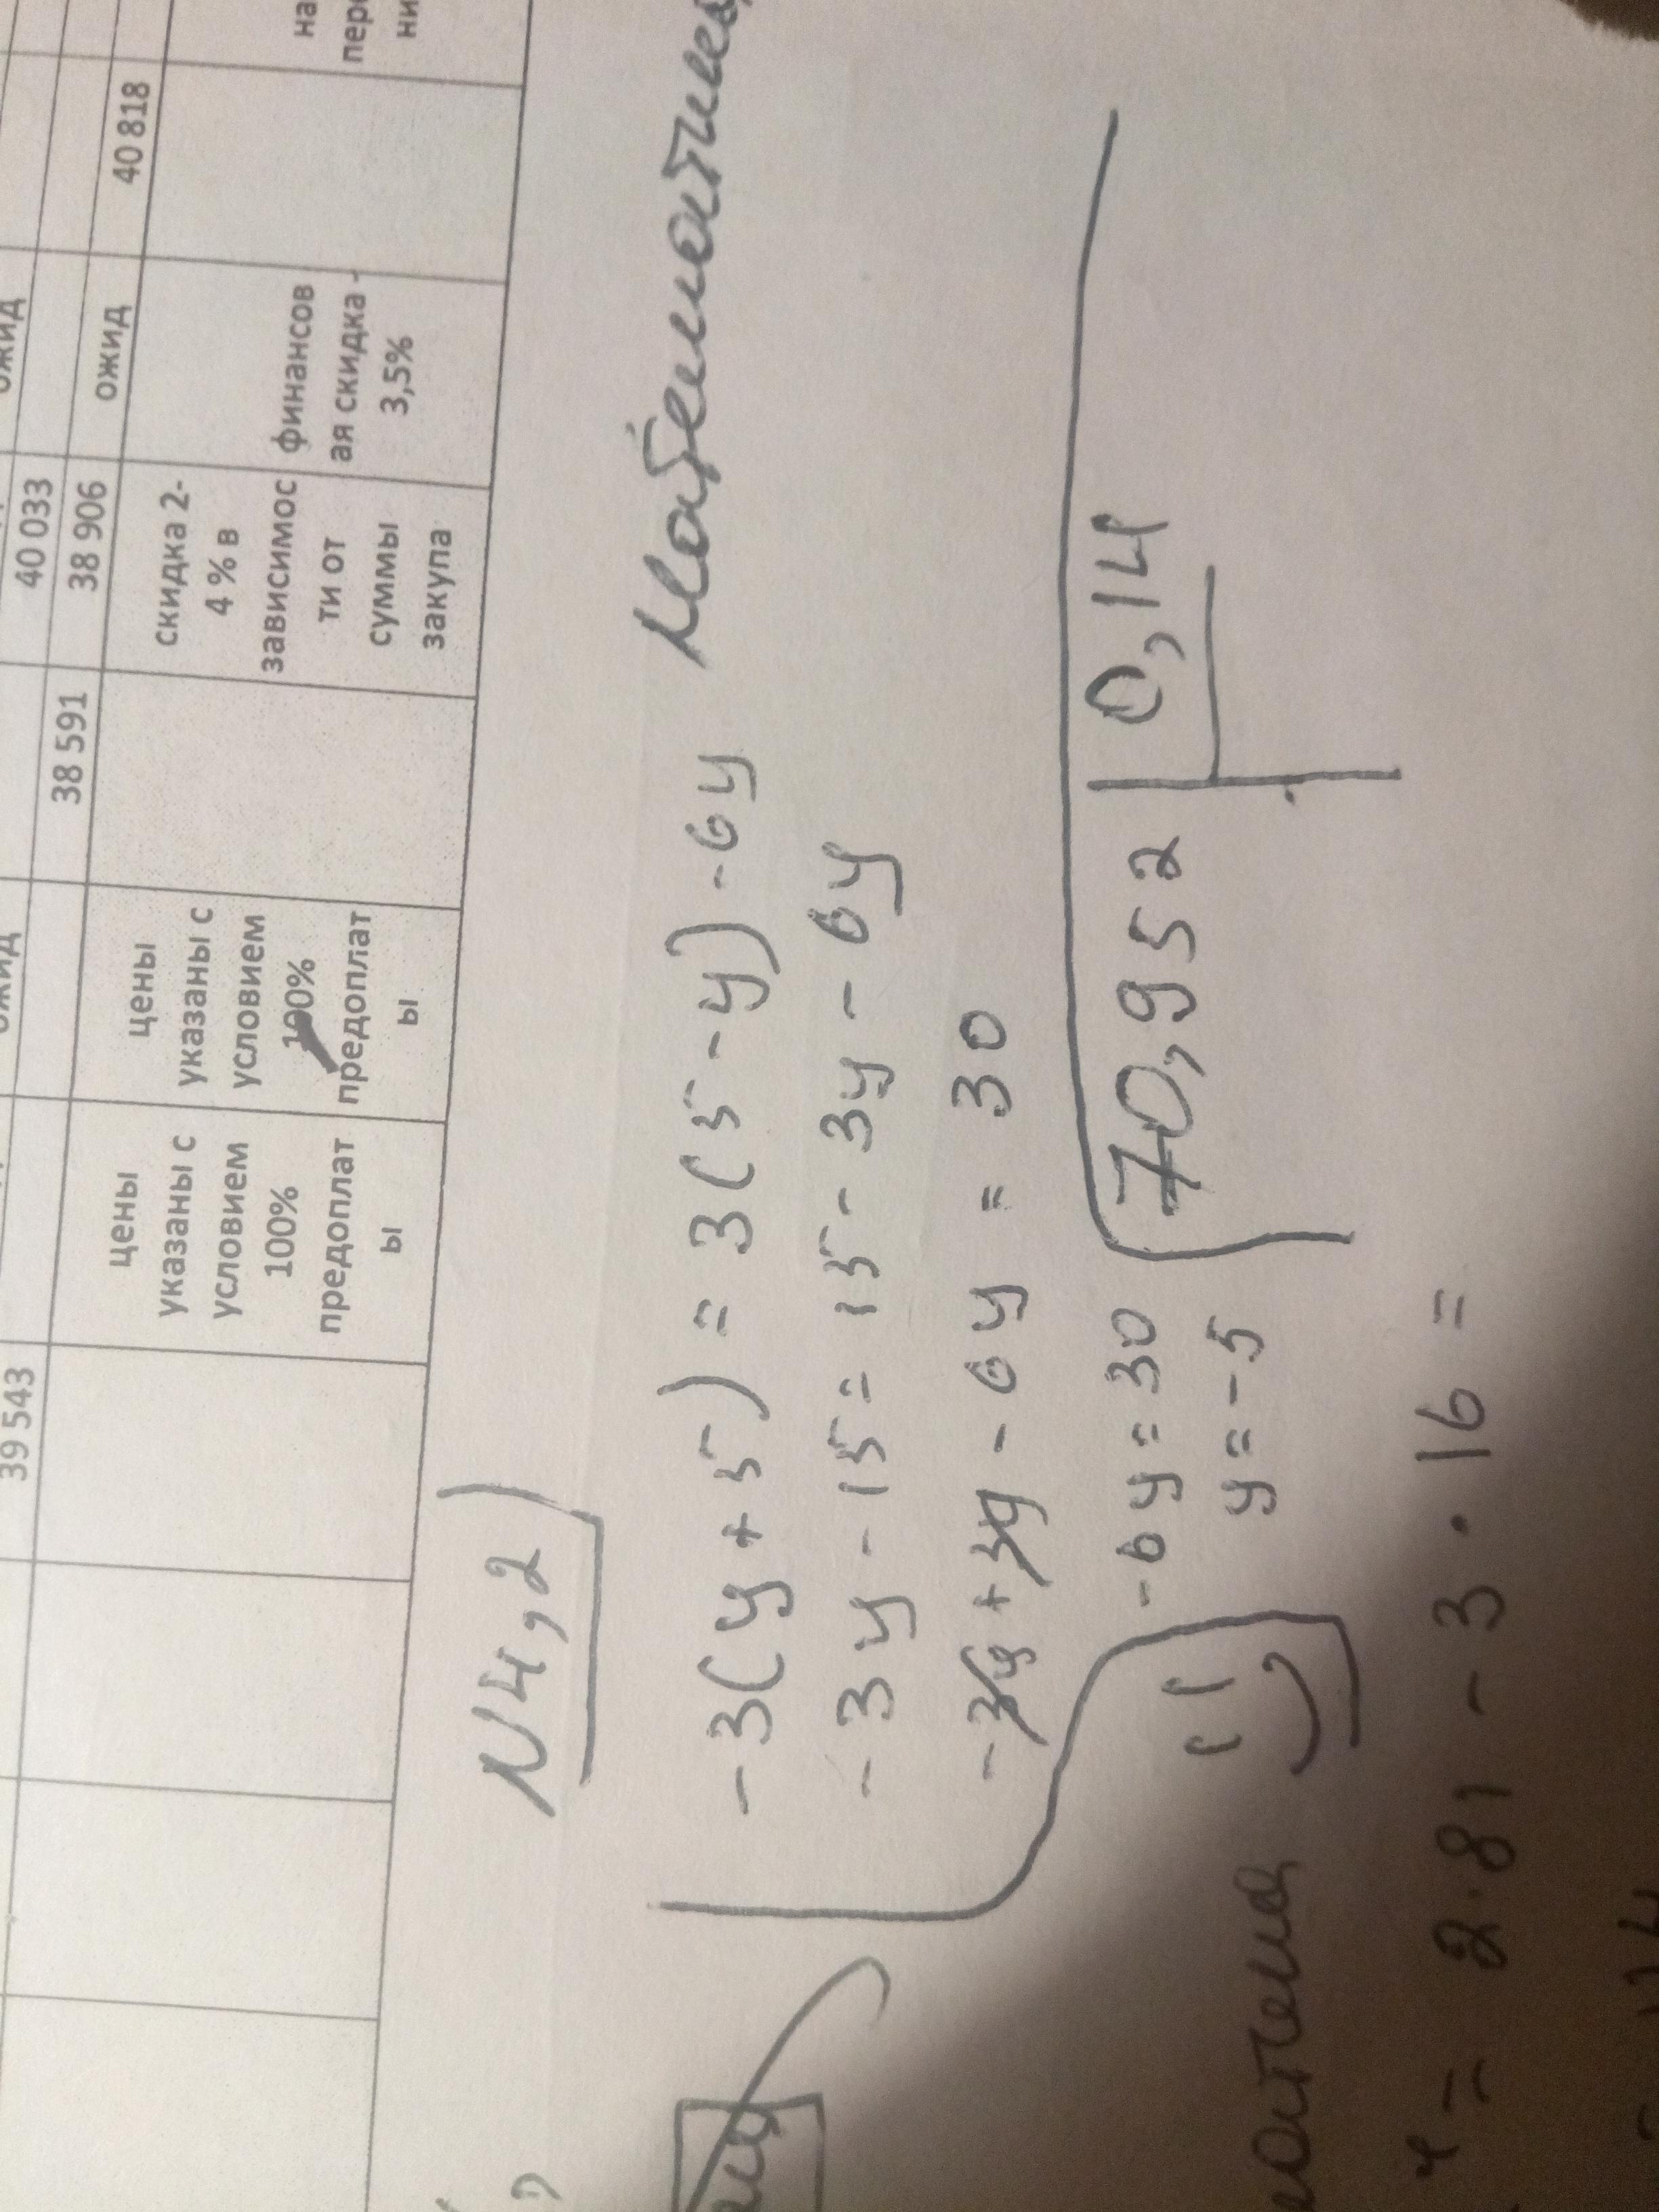 39 543
38 591
40 033
38 906
ожид
ожид
40 818
цены
указаны с
условием
100%
предоплат
ы
цены
указаны с
условием
100%
предоплат
ы
скидка 2-
4 % в
зависимос
ти от
суммы
закупа
финансов
ая скидка -
3,5%
на
N4,2)
-3(y+5) = 3(5-y)-6y
-3y-15=15-3y-6y
-3y+3y-6y = 30
-6y=30
y=-5
70,952 0,14
= 2·81 - 3·16 =